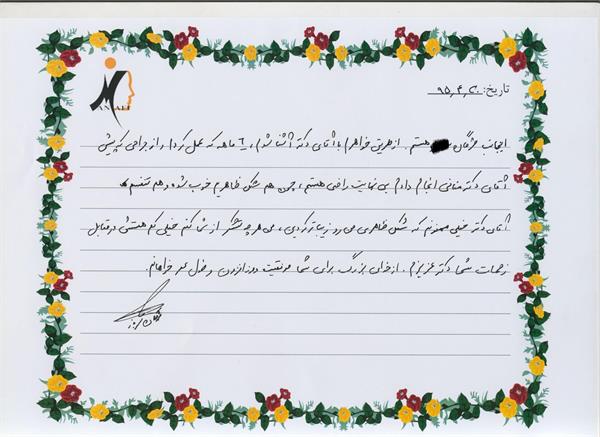 MANAFI
تاریخ: ۹۵,۴,۲۰
اینجانب مژگان هستم. از طریق خواهرم با آقای دکتر آشنا شدم، ۶ ماهه که عمل کردم و از جراحی که پیش
آقای دکتر منافی انجام دادم بی نهایت راضی هستم، چون هم شکل ظاهریم خوب شده و هم تنفسم
آقای دکتر خیلی ممنونم که شکل ظاهری می رو زیباتر کردین، من هر چه تشکر از شما کنم خیلی کم هستش در مقابل
زحمات شما دکتر عزیزم. از خدای بزرگ برای شما موفقیت روزافزون و طول عمر خواهانم.